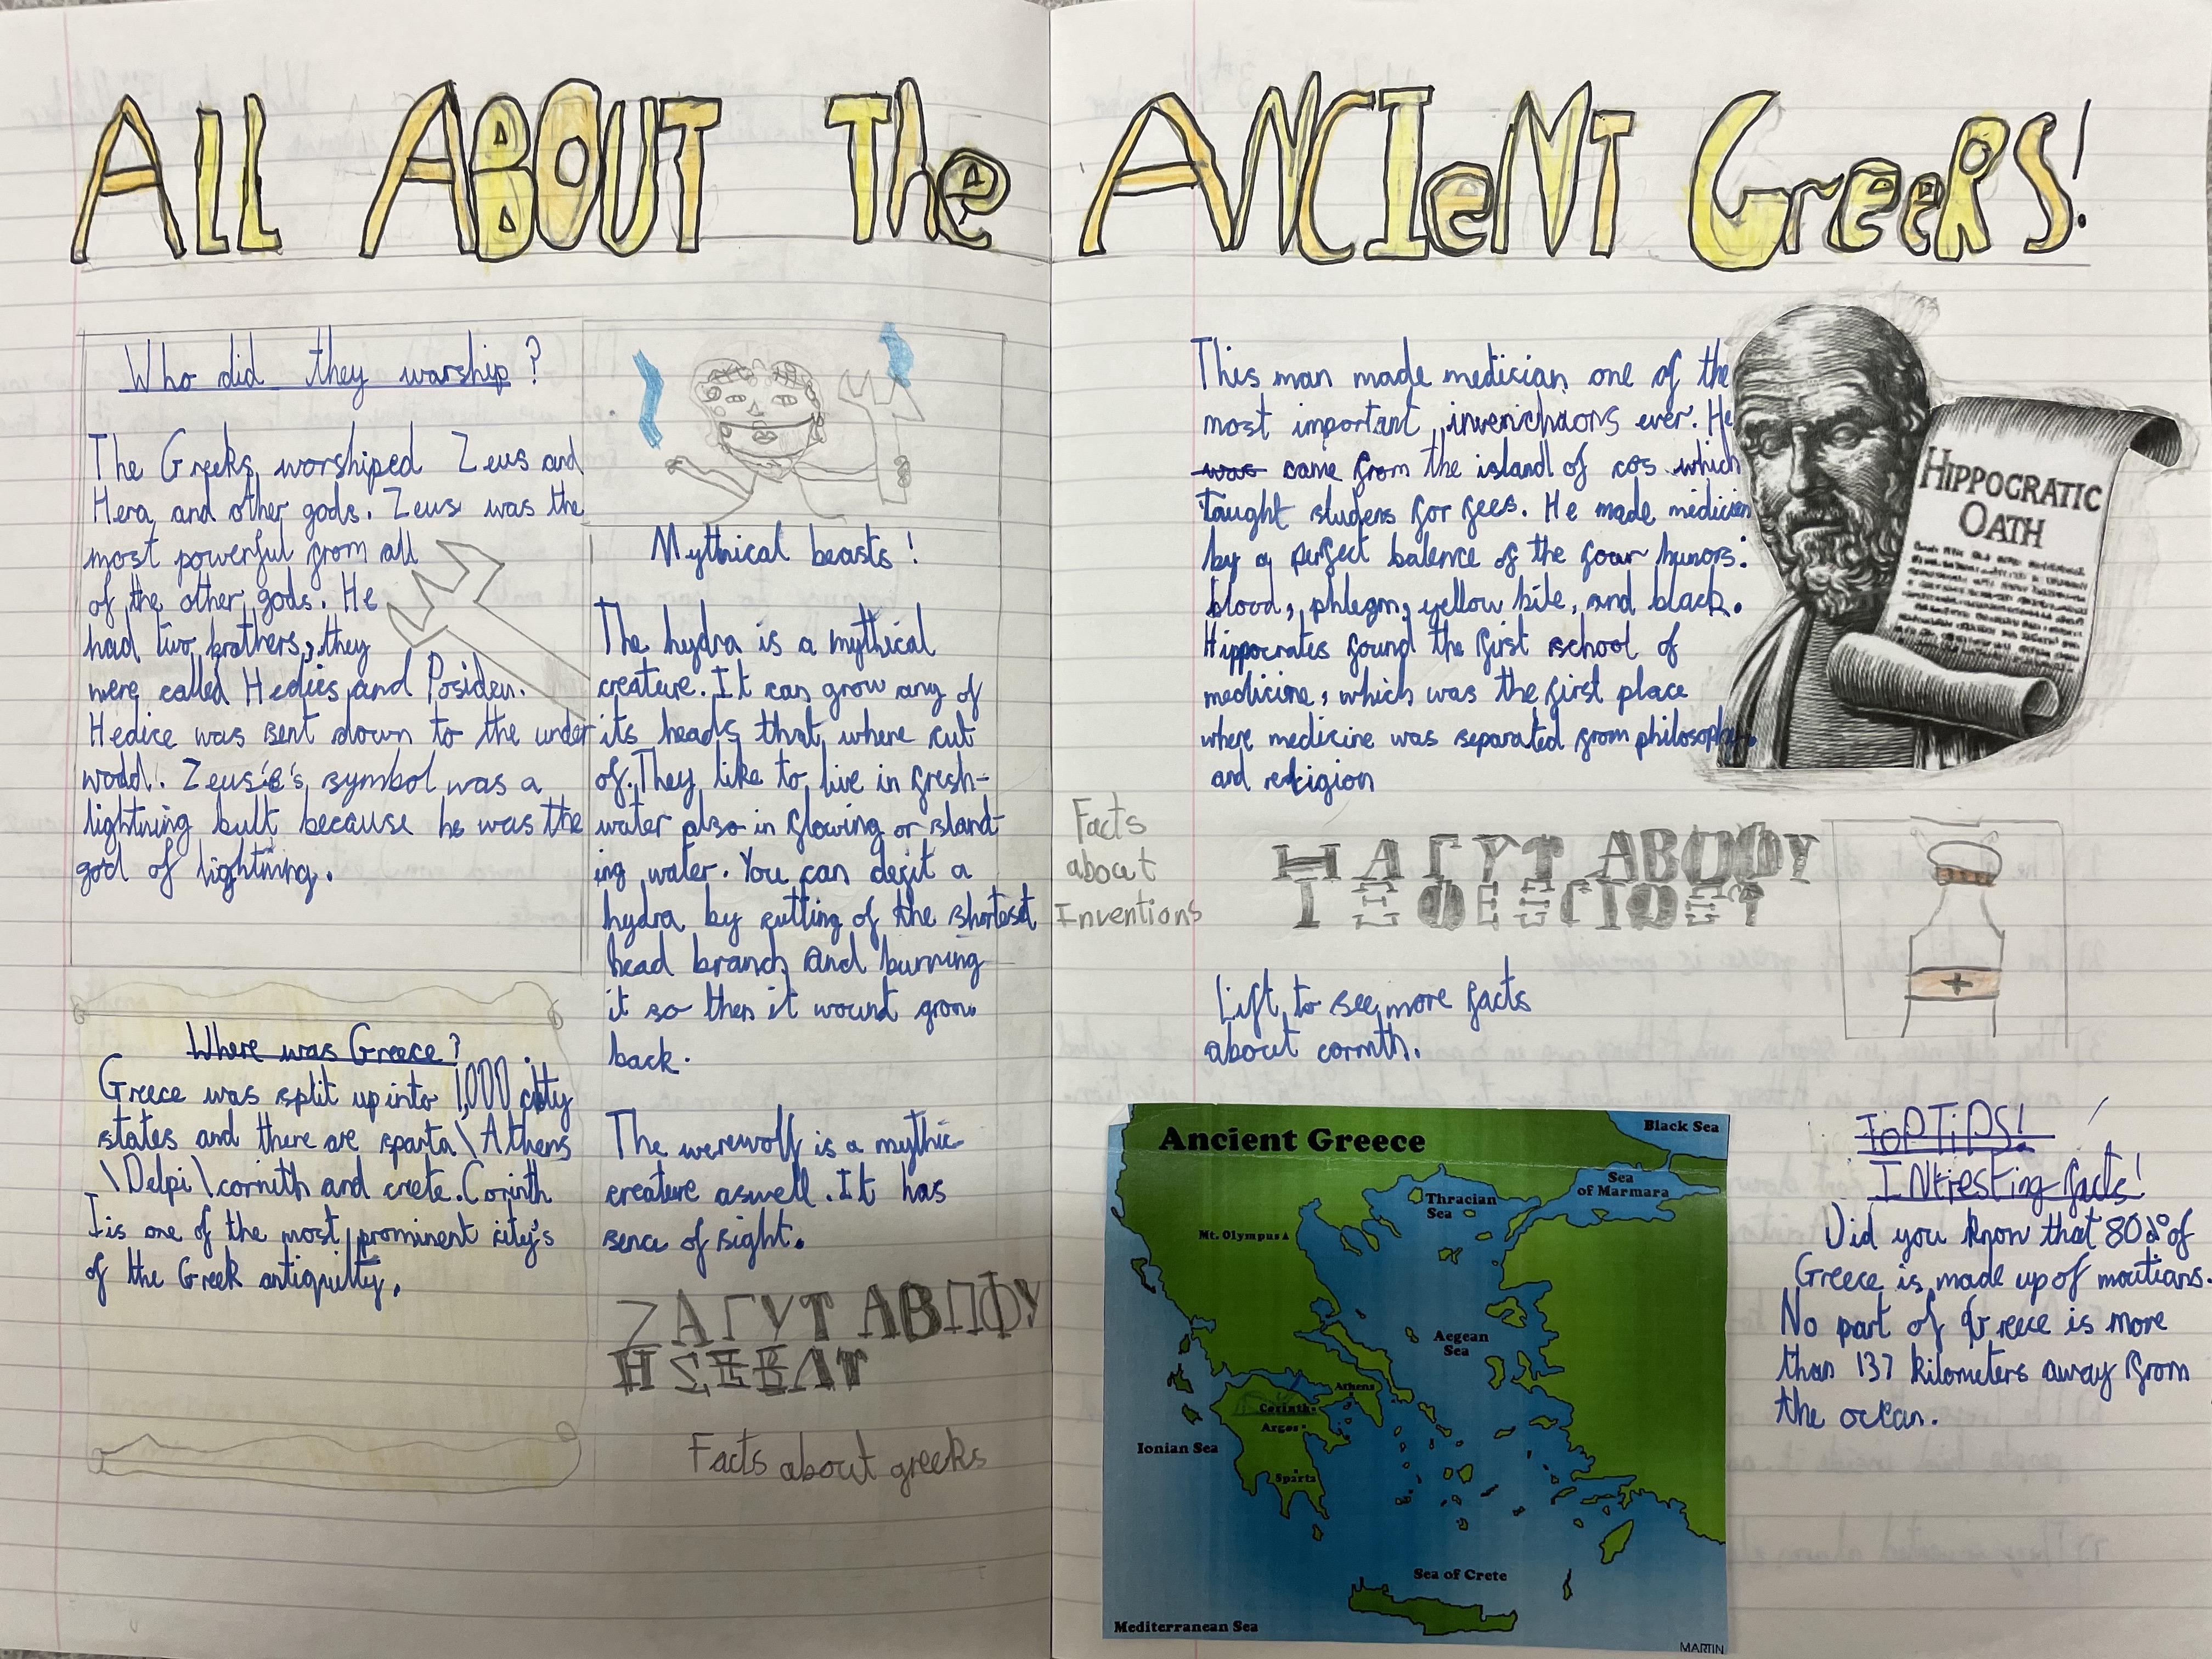 ALL ABOUT The ANCIeNT GreeKS!
Who did they warship ?
The Greeks worshiped Zeus and
Hera and other gods. Zeus was the
most powerful from all
of the other gods. He
had two brothers, they
were called Hedies and Posiden.
Hedice was sent down to the under
wodd. Zeus's symbol was a
lightning bult because he was the
god of lightning.
Where was Greece?
Greece was split up into 1,000 city
states and there are sparta\Athens
\Delpi\cornith and crete. Corinth
Iis one of the most prominent city's
of the Greek antiquitty.
Mythical beasts!
The hydra is a mythical
creature. It can grow any of
its heads that where cut
of. They like to live in fresh-
water also in flowing or stand-
ing water. You can defit a
hydra by cutting of the shortest
head branch and burning
it so then it wount grow
back.
The werewolf is a mythic
creature aswell. It has
sence of sight.
ΖΑΓΥΤ ΑΒΠΦΥ
ΗΣΞΒΛΤ
Facts about greeks
This man made medician one of the
most important invenichaons ever. He
was came from the island of cos which
taught studens for fees. He made medicien
by a perfect balence of the four humors:
blood, phlegm, yellow bile, and black.
Hippocrates found the first school of
medicine, which was the first place
where medicine was separated from philosophy.
and religion
HIPPOCRATIC
OATH
Facts
about
Inventions
ΗΑΓΥΤ ΑΒΟΦΥ
Lift to see more facts
about cornith.
Ancient Greece
Black Sea
Sea
of Marmara
Thracian
Sea
Mt. Olympus
Aegean
Sea
Athens
Corinth
Argos
Ionian Sea
Sparta
Sea of Crete
Mediterranean Sea
MARTIN
ToPTiPS!
INtresting facts!
Did you know that 80% of
Greece is made up of moutians.
No part of Greece is more
than 137 kilometers away from
the ocean.